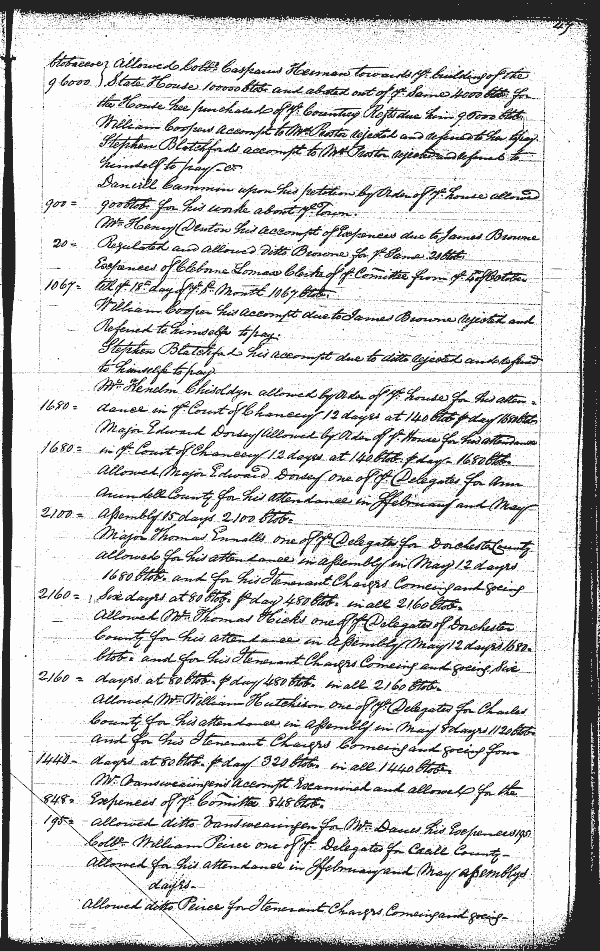 49
lbtobaccoe} Allowed Coll.o Casparus Herman towards ye. building of the
96000 } State House 100000lbtob and abated out of ye Same 4000lbtob for
the House hee purchased of ye Countrey Rests due him 96000 lbtob.
William Coopers accompt to Mr. Proctor rejected and referred to him to pay.
Stephen Blatchford accompt to Mr. Proctor rejected and referred to
himselfe to pay &c
Daniell Cammin upon his petition by Order of ye. house allowed
900 = 900lbtob. for his worke about ye. Town.
Mr. Henry Denton his accompt of Expences due to James Browne
20 = Regulated and allowed ditto Browne for ye. Same 20lbtob.
Expences of Cleborne Lomax Clerke of ye. Comittee from ye. 4th of October
1067 = till ye. 18th. day of ye. st. Month 1067 lbtob.
William Cooper his accompt due to James Browne rejected and
Referred to himselfe to pay.
Stephen Blatchford his accompt due to ditto rejected and referred
to himselfe to pay
Mr. Kenelm Chiseldyn allowed by Order of ye. house for his atten=
1680 = dance in ye. Court of Chancery 12 dayes at 140 lbtob ꝑ day 1680lbtob
Major Edward Dorsey Allowed by Order of ye. House for his attendance
1680 = in ye. Court of Chancery 12 dayes at 140lbtob. ꝑ day 1680lbtob.
Allowed Major Edward Dorsey one of ye. Delegates for Ann
Arundell County for his attendance in ffebruary and May
2100 = Assembly 15 days 2100 lbtob.
Major Thomas Ennalls one of ye. Delegates for Dorchester County
allowed for his attendance in assembly in May 12 dayes
1680lbtob. and for his Itenerant Charges Comeing and going
2160 = Six dayes at 80lbtob. ꝑ day 480lbtob. in all 2160lbtob.
Allowed Mr. Thomas Hicks one of ye. Delegates of Dorchester
County for his attendance in Assembly May 12 dayes 1680=
lbtob. and for his Itenerant Charges Comeing and going Six
2160 = dayes at 80lbtob. ꝑ day 480lbtob. in all 2160 lbtob.
Allowed Mr. William Hutchison one of ye. Delegates for Charles
County for his attendance in Assembly in May 8 dayes 1120lbtob
and for his Itenerant Charges Comeing and going four
1440= dayes at 80lbtob. ꝑ day 320lbtob. in all 1440lbtob.
Mr. Vansweringens Accompt Examined and allowed for the
848= Expences of ye. Comittee 848lbtob.
195= allowed ditto Vansweringen for Mr. Daues his Expences 195
Coll.o William Peirce one of ye. Delegates for Cecill County
Allowed for his attendance in ffebruary and May assemblys
dayes
Allowed ditto Peirce for Itenerant Charges Comeing and going